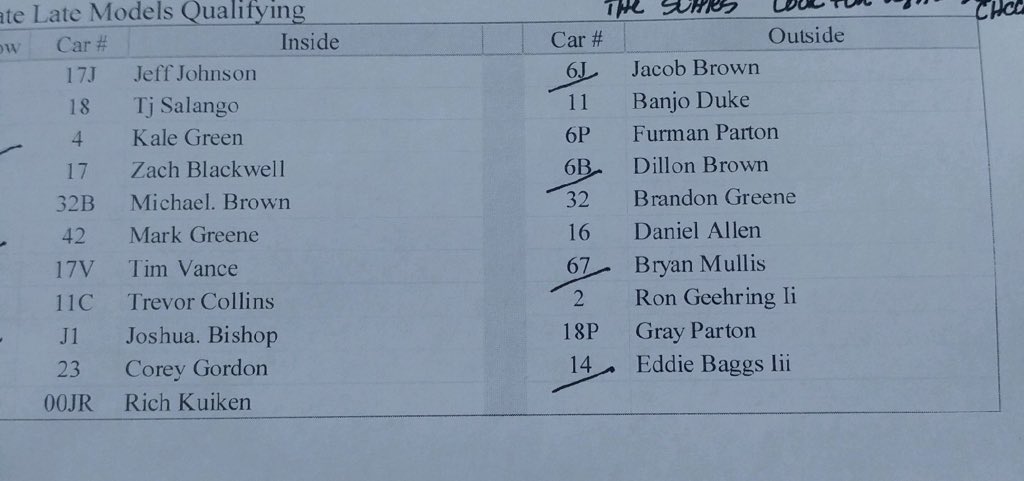 Late Models Qualifying
THE
Car # Inside Car # Outside
17J Jeff Johnson 6J Jacob Brown
18 Tj Salango 11 Banjo Duke
4 Kale Green 6P Furman Parton
17 Zach Blackwell 6B Dillon Brown
32B Michael. Brown 32 Brandon Greene
42 Mark Greene 16 Daniel Allen
17V Tim Vance 67 Bryan Mullis
11C Trevor Collins 2 Ron Geehring Ii
J1 Joshua. Bishop 18P Gray Parton
23 Corey Gordon 14 Eddie Baggs Iii
00JR Rich Kuiken